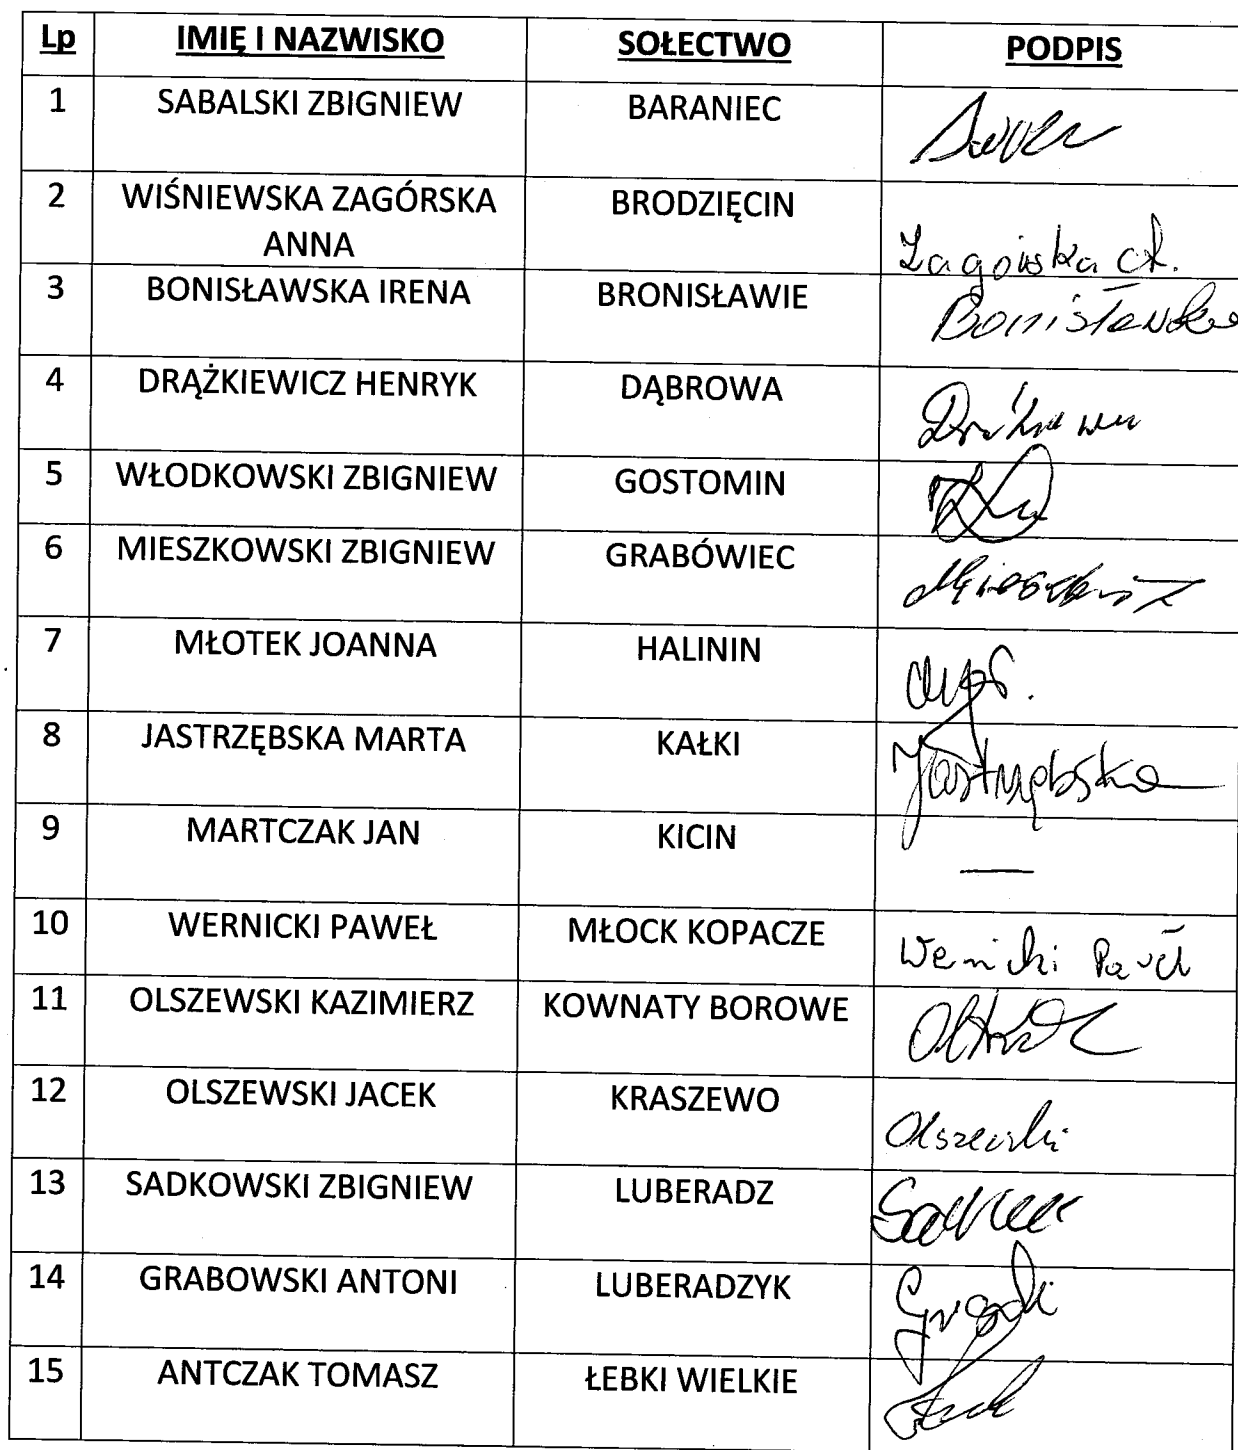 Lp IMIĘ I NAZWISKO SOŁECTWO PODPIS
1 SABALSKI ZBIGNIEW BARANIEC
2 WIŚNIEWSKA ZAGÓRSKA BRODZIĘCIN
ANNA Zagórska A.
3 BONISŁAWSKA IRENA BRONISŁAWIE Bonisławska
4 DRĄŻKIEWICZ HENRYK DĄBROWA
5 WŁODKOWSKI ZBIGNIEW GOSTOMIN
6 MIESZKOWSKI ZBIGNIEW GRABÓWIEC
7 MŁOTEK JOANNA HALININ
8 JASTRZĘBSKA MARTA KAŁKI Jastrzębska
9 MARTCZAK JAN KICIN —
10 WERNICKI PAWEŁ MŁOCK KOPACZE Wernicki Paweł
11 OLSZEWSKI KAZIMIERZ KOWNATY BOROWE
12 OLSZEWSKI JACEK KRASZEWO Olszewski
13 SADKOWSKI ZBIGNIEW LUBERADZ
14 GRABOWSKI ANTONI LUBERADZYK
15 ANTCZAK TOMASZ ŁEBKI WIELKIE